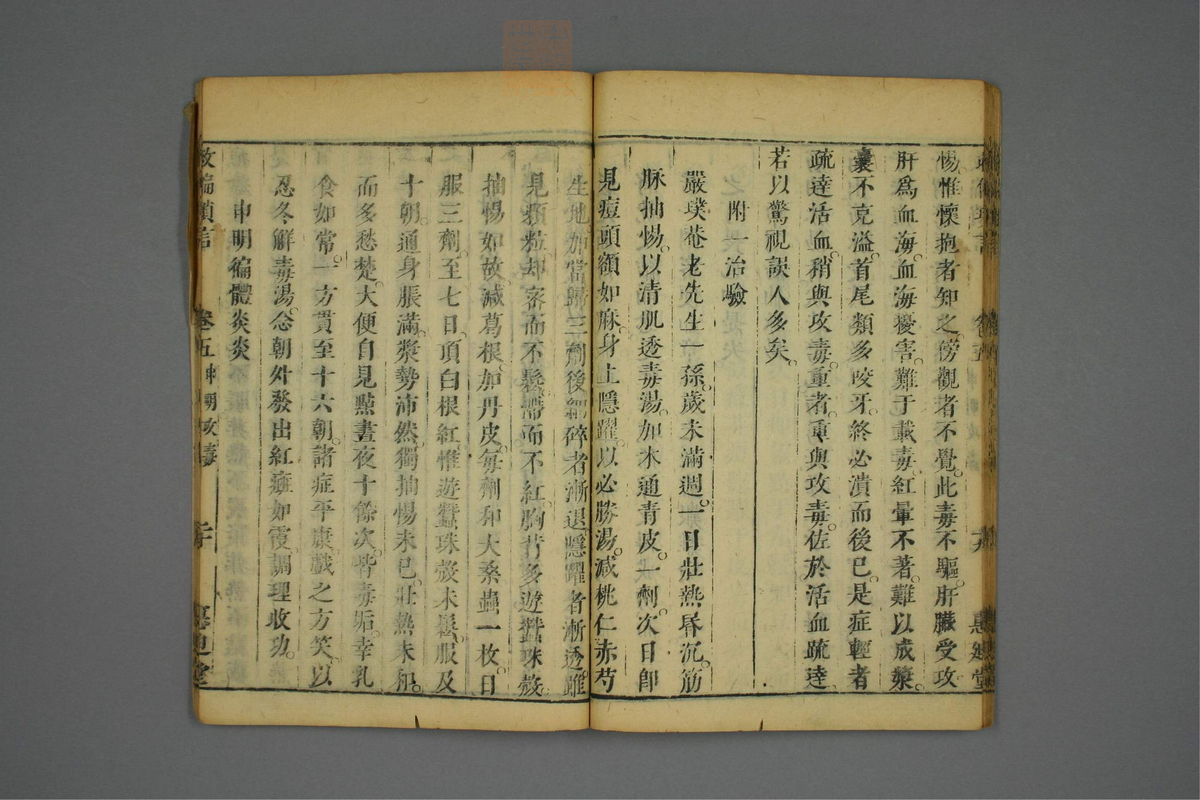 惕。惟懷抱者知之。傍觀者不覺。此毒不驅。肝臟受攻
肝爲血海。血海擾害。難于載毒。紅暈不著。難以成漿。
囊不克溢。首尾類多咬牙。終必潰而後已。是症輕者
疏達活血。稍與攻毒。重者。重與攻毒。佐於活血疏達
若以驚視。誤人多矣。
附一治驗
嚴璞菴老先生一孫。歲未滿週。一日壯熱昏沉。筋
脉抽惕。以清肌透毒湯。加木通青皮。一劑。次日卽
見痘頭額如麻。身上隱躍。以必勝湯。減桃仁赤芍
生地。加當歸。三劑後。細碎者漸退。隱躍者漸透。雖
見顆粒。却窄而不鬆。滯而不紅。胸背多遊蠶珠殼。
抽惕如故。減葛根。加丹皮。每劑和大桑蟲一枚。日
服三劑。至七日。頂白根紅。惟遊蠶珠殼未鬆。服及
十朝。通身脹滿。漿勢沛然。獨抽惕未已。壯熱未和。
而多愁楚。大便自見㸃。晝夜十餘次。皆毒垢。幸乳
食如常。一方貫至十六朝。諸症平康。戲之方笑。以
忍冬解毒湯。念朝外發出紅㾦如霞。調理收功。
申明徧體炎炎
救偏瑣言
卷五
申明攻毒
二十
惠迪堂